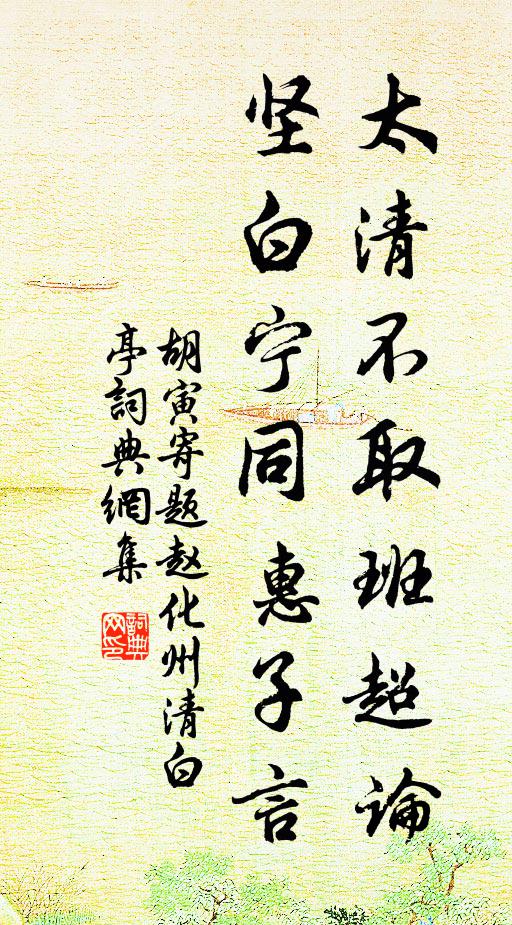 太清不取班超论
坚白宁同惠子言
胡寅寄题赵化州清白
亭詞典網集
詞典
网印